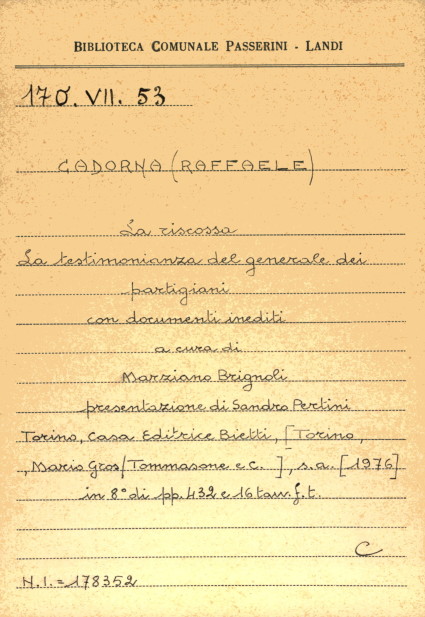 BIBLIOTECA COMUNALE PASSERINI - LANDI
170. VII. 53
CADORNA (RAFFAELE)
La riscossa
La testimonianza del generale dei
partigiani
con documenti inediti
a cura di
Marziano Brignoli
presentazione di Sandro Pertini
Torino, Casa Editrice Bietti, [Torino,
, Mario Gros/Tommasone e C. ], s.a. [1976]
in 8° di pp. 432 e 16 tavv. f. t.
C
N.I. = 178352